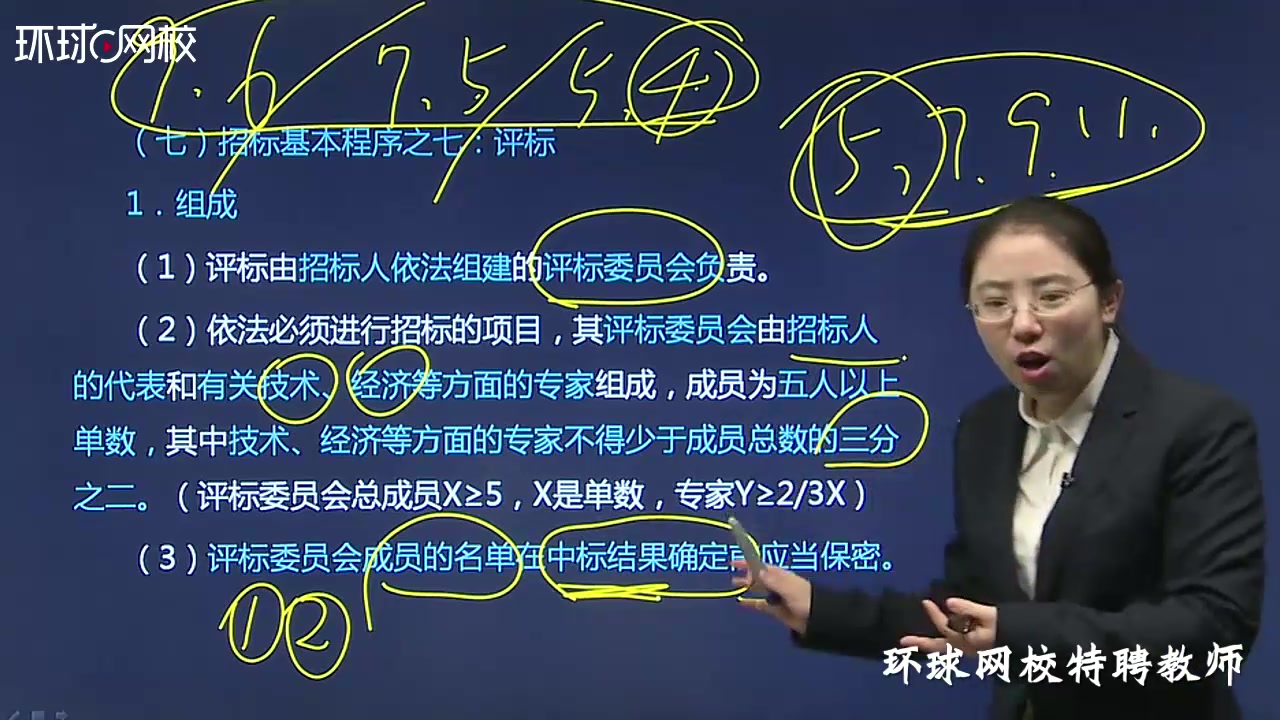 环球网校
9.6/7.5/5.4
5,7.9.11.
（七）招标基本程序之七：评标
1．组成
（1）评标由招标人依法组建的评标委员会负责。
（2）依法必须进行招标的项目，其评标委员会由招标人
的代表和有关技术、经济等方面的专家组成，成员为五人以上
单数，其中技术、经济等方面的专家不得少于成员总数的三分
之二。（评标委员会总成员X≥5，X是单数，专家Y≥2/3X）
（3）评标委员会成员的名单在中标结果确定前应当保密。
① ②
环球网校特聘教师